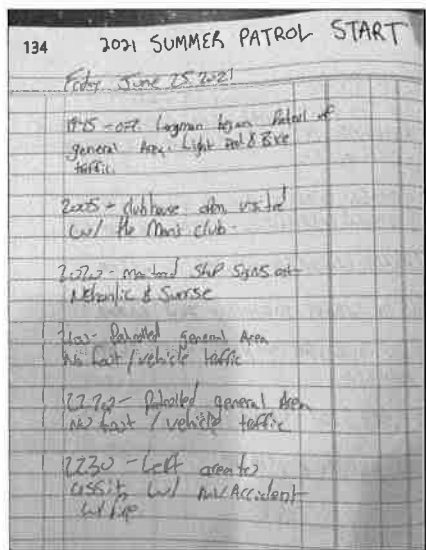 134 2021 SUMMER PATROL START
Friday June 25 2021
1945 - OFC. began Patrol of
general Area. Light & Bike
traffic.
2005 - clubhouse open, visited
w/ the Men's club.
STOP Signs at
& Sunrise
Patrolled general Area
No foot / vehicle traffic
Patrolled general Area
No foot / vehicle traffic
2230 - Left area to
assist w/ MV Accident